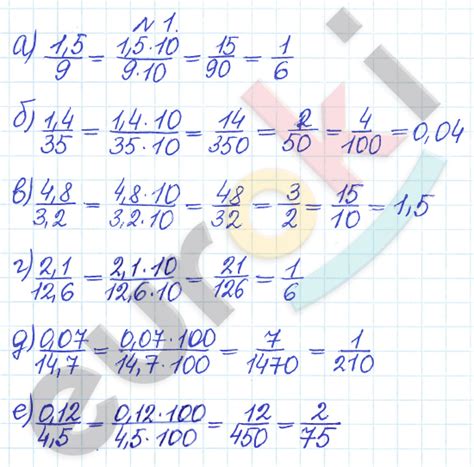 № 1.
а) 1,5/9 = 1,5·10/9·10 = 15/90 = 1/6
б) 1,4/35 = 1,4·10/35·10 = 14/350 = 2/50 = 4/100 = 0,04
в) 4,8/3,2 = 4,8·10/3,2·10 = 48/32 = 3/2 = 15/10 = 1,5
г) 2,1/12,6 = 2,1·10/12,6·10 = 21/126 = 1/6
д) 0,07/14,7 = 0,07·100/14,7·100 = 7/1470 = 1/210
е) 0,12/4,5 = 0,12·100/4,5·100 = 12/450 = 2/75
euroki